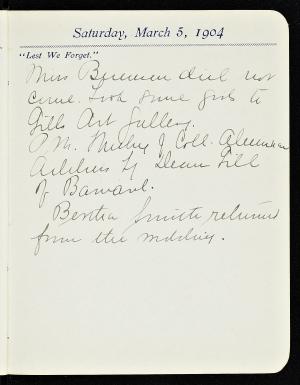 Saturday, March 5, 1904
"Lest We Forget."
Miss did not
come. Took some girls to
Gills Art Gallery.
P.M. Meeting of Coll. Alumnae
Address by Dean Gill
of Barnard.
Bertha Smith returned
from the